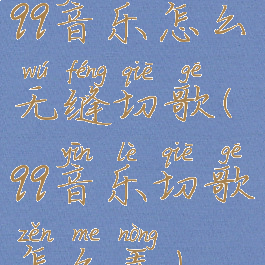 99音乐怎么
wú féng qiē gē
无缝切歌(
yīn lè qiē gē
99音乐切歌
zěn me nòng
怎么弄)